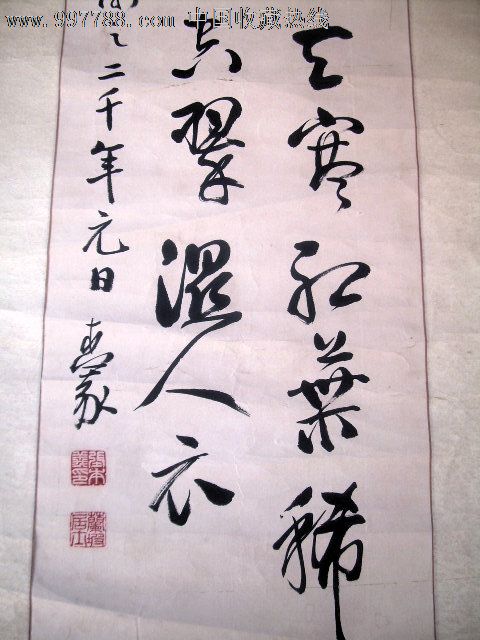 www.997788.com 中国收藏热线
天寒紅葉稀
空翠濕人衣
二千年元日